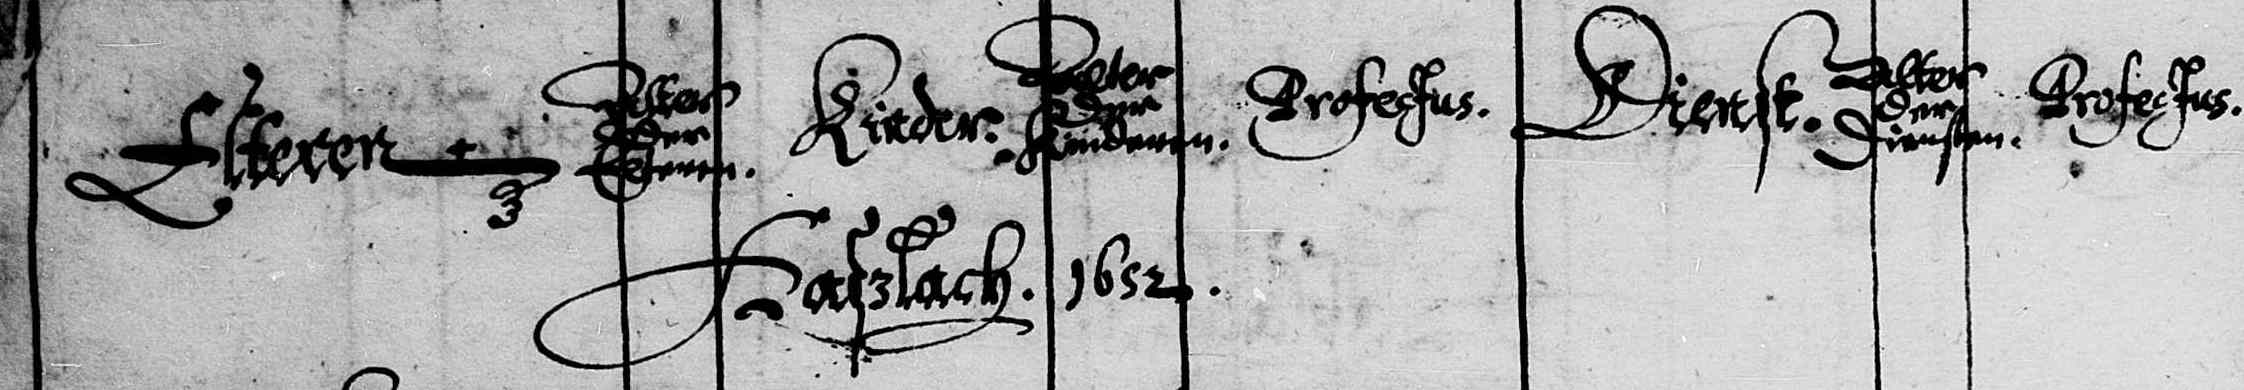 Elteren
Alter
der
Elteren.
Kinder.
Alter
der
Kinderen.
Profectus.
Dienst.
Alter
der
Diensten.
Profectus.
Haszlach. 1652.